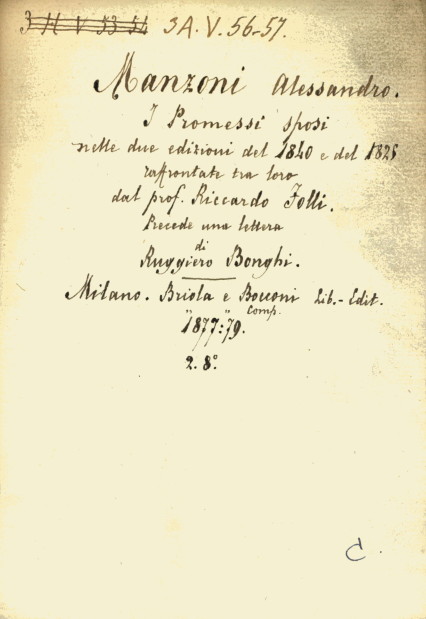 3 H V 53-54 3A.V.56-57.
Manzoni Alessandro.
I Promessi sposi
nelle due edizioni del 1840 e del 1825
raffrontate tra loro
dal prof. Riccardo Folli.
Precede una lettera
di
Ruggiero Bonghi.
Milano. Briola e Bocconi Lib.-Edit.
" 1877:79. " Comp.
2. 8°.
C.